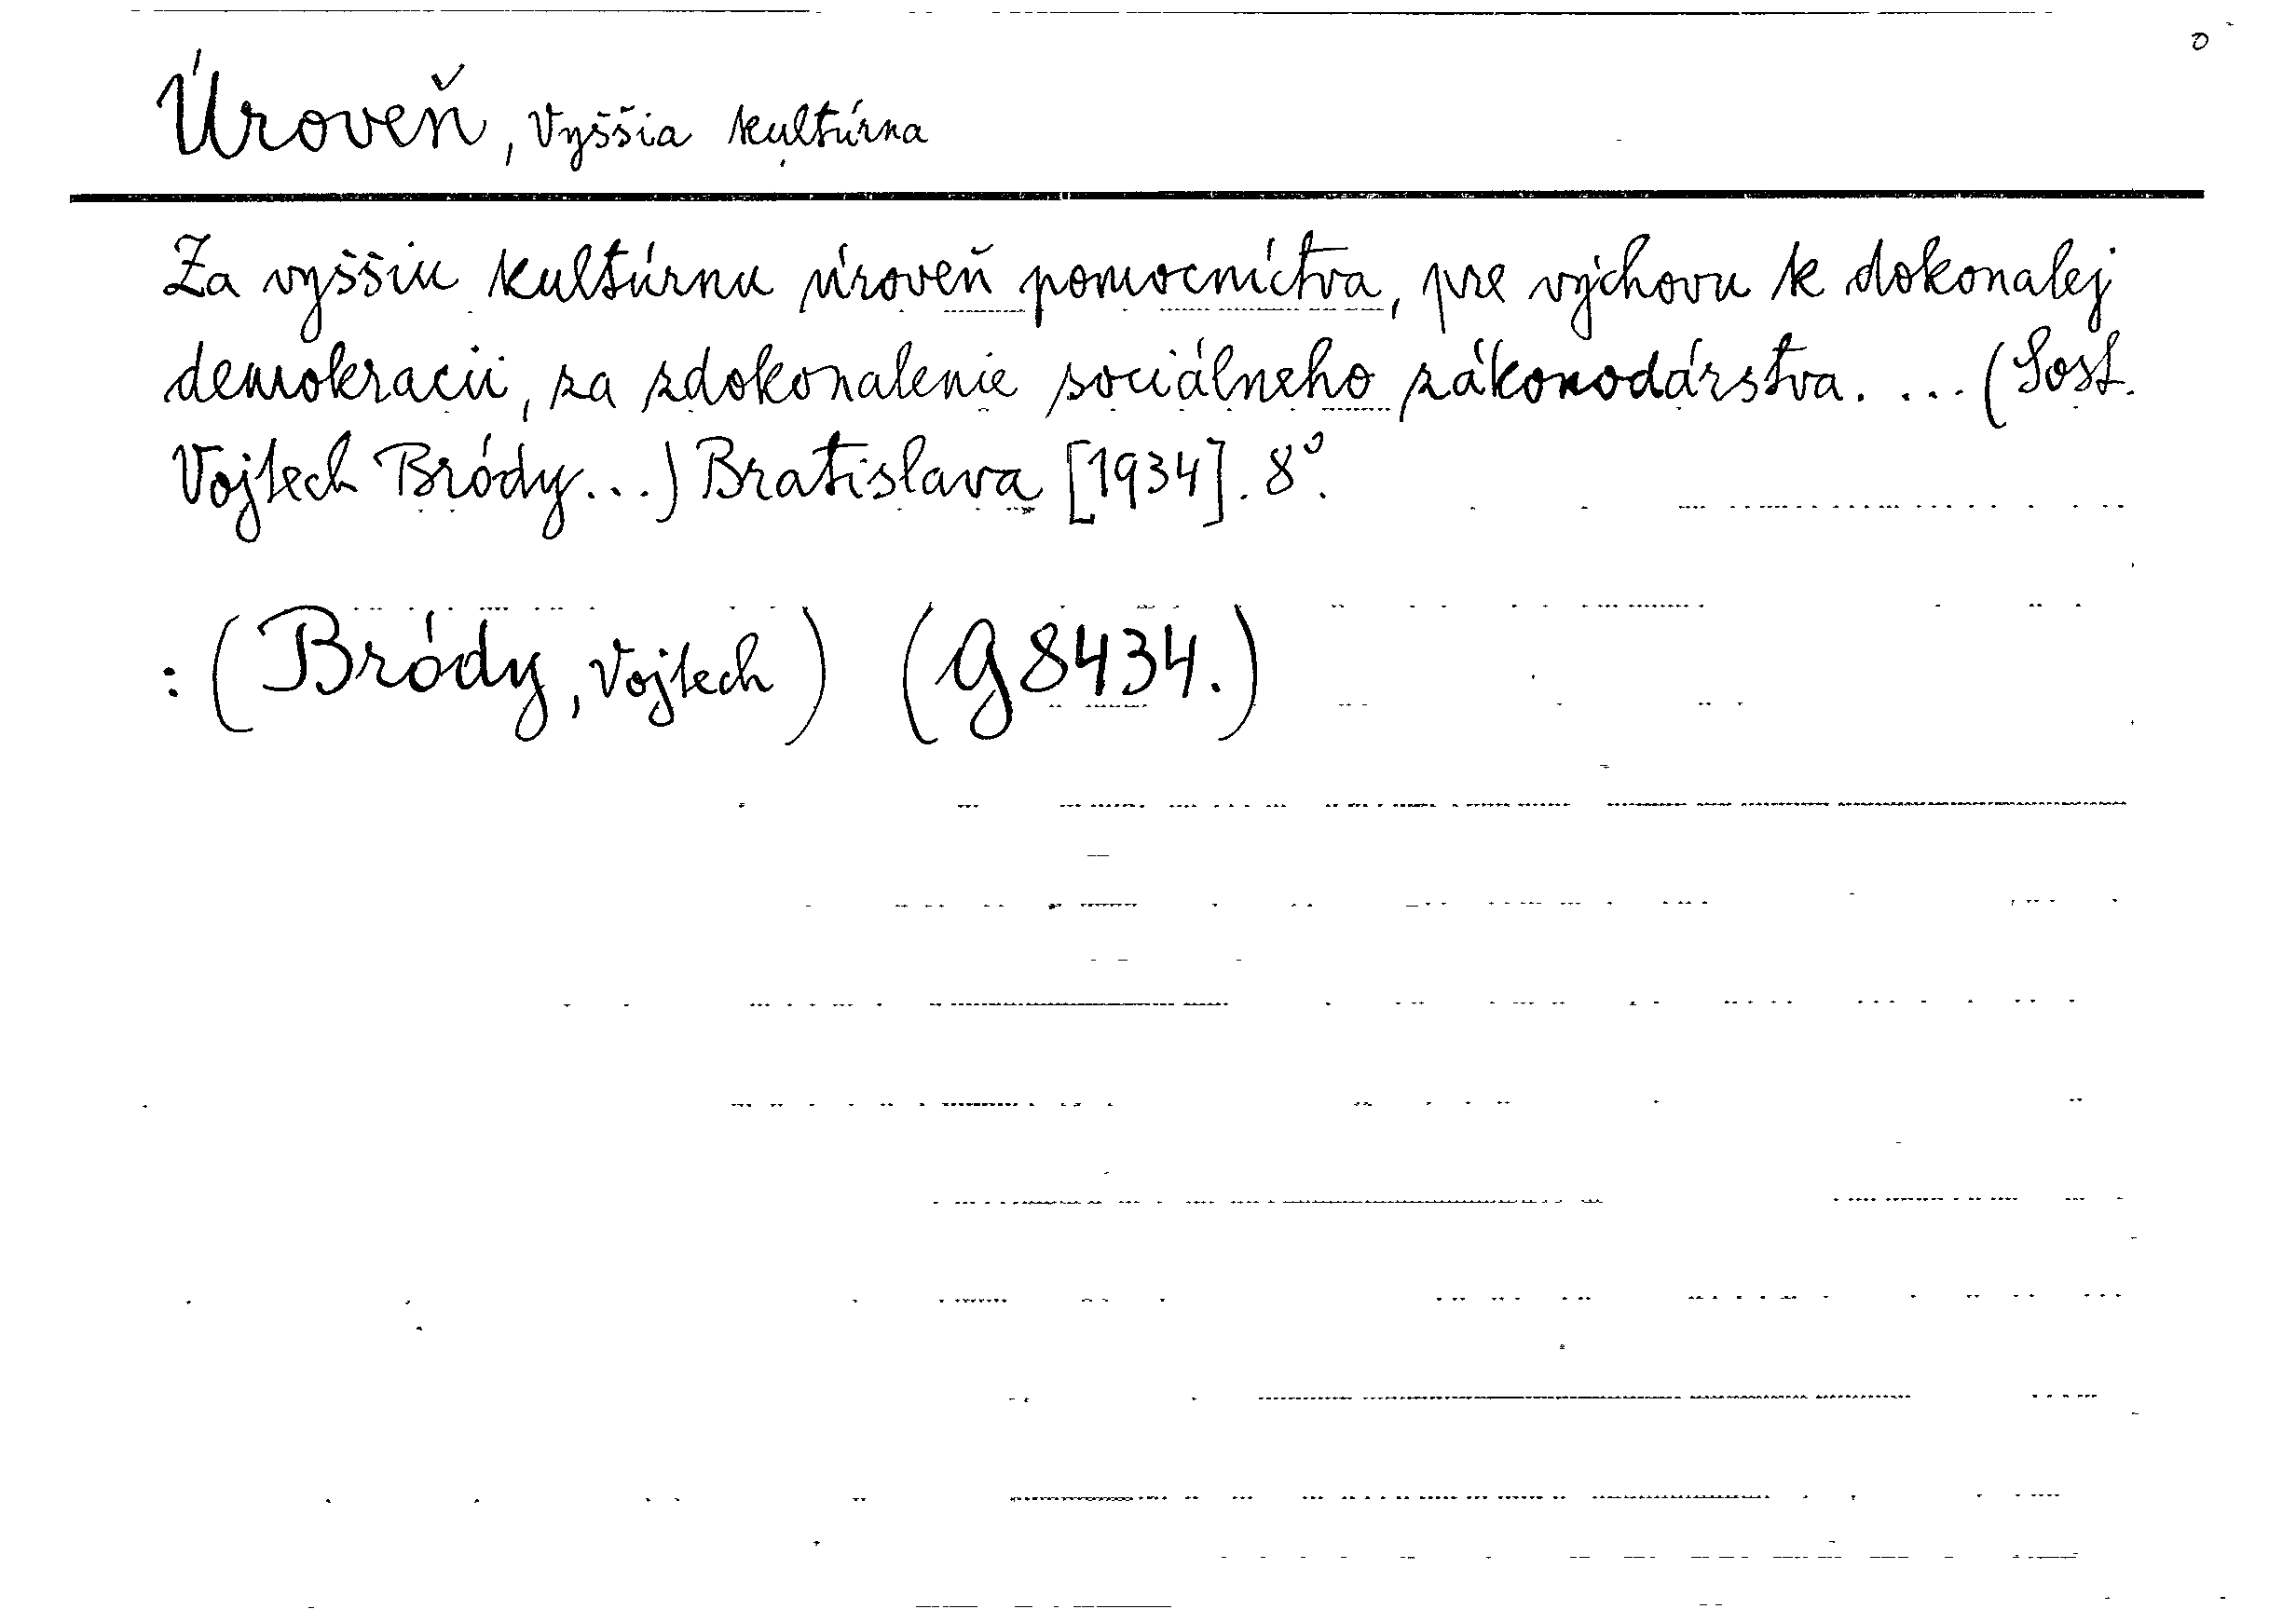 o
Úroveň, Vyššia kultúrna
Za vyššiu kultúrnu úroveň pomocníctva, pre výchovu k dokonalej
demokracii, za zdokonalenie sociálneho zákonodárstva. ... (Sost.
Vojtech Bródy...) Bratislava [1934]. 8°.
: (Bródy, Vojtech) (G 8434.)